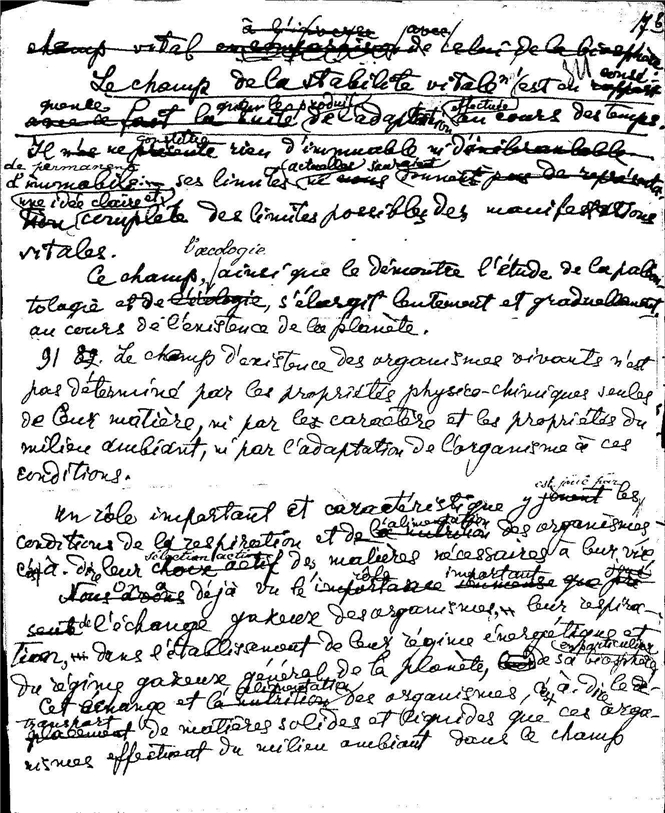 à l'inverse avec
champ vital en comparaison de celui de la biosphère
Le champ de la stabilité vitale n'est qu'
quence que le produit effectuée
avec le la suite de l'adaptation au cours des temps.
constitue
Il ne présente rien d'immuable ni
de permanent actuelles sauraient
d'immobile ses limites ne nous donnent pas de représenta-
une idée claire et
tion complète des limites possibles des manifestations
vitales.
l'œcologie
Ce champ, ainsi que le démontre l'étude de la paléon-
tologie et de l'écologie, s'élargit lentement et graduellement,
au cours de l'existence de la planète.
91 89. Le champ d'existence des organismes vivants n'est
pas déterminé par les propriétés physico-chimiques seules
de leur matière, ni par le caractère et les propriétés du
milieu ambiant, ni par l'adaptation de l'organisme à ces
conditions.
est joué par
Un rôle important et caractéristique y jouent les
l'alimentation
conditions de la respiration et de la nutrition des organismes
sélection active
c.à.d. de leur choix actif des matières nécessaires à leur vie
on a rôle important
Nous avons déjà vu le importance immense que
de l'échange gazeux des organismes, leur respira-
tion, dans l'établissement de leur régime énergétique et
en particulier
du régime gazeux général de la planète, de sa biosphère
alimentation
Cet échange et la nutrition des organismes, c. à. d. le
transport
placement de matières solides et liquides que ces orga-
nismes effectuent du milieu ambiant dans le champ